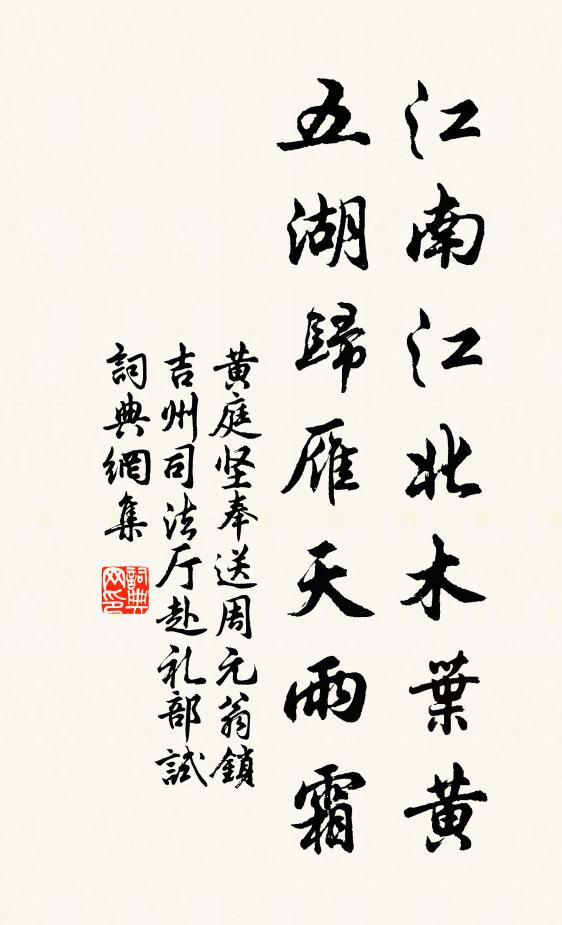 江南江北木葉黄
五湖歸雁天雨霜
黄庭坚奉送周元翁鎖
吉州司法厅赴礼部試
詞典網集
詞典网印